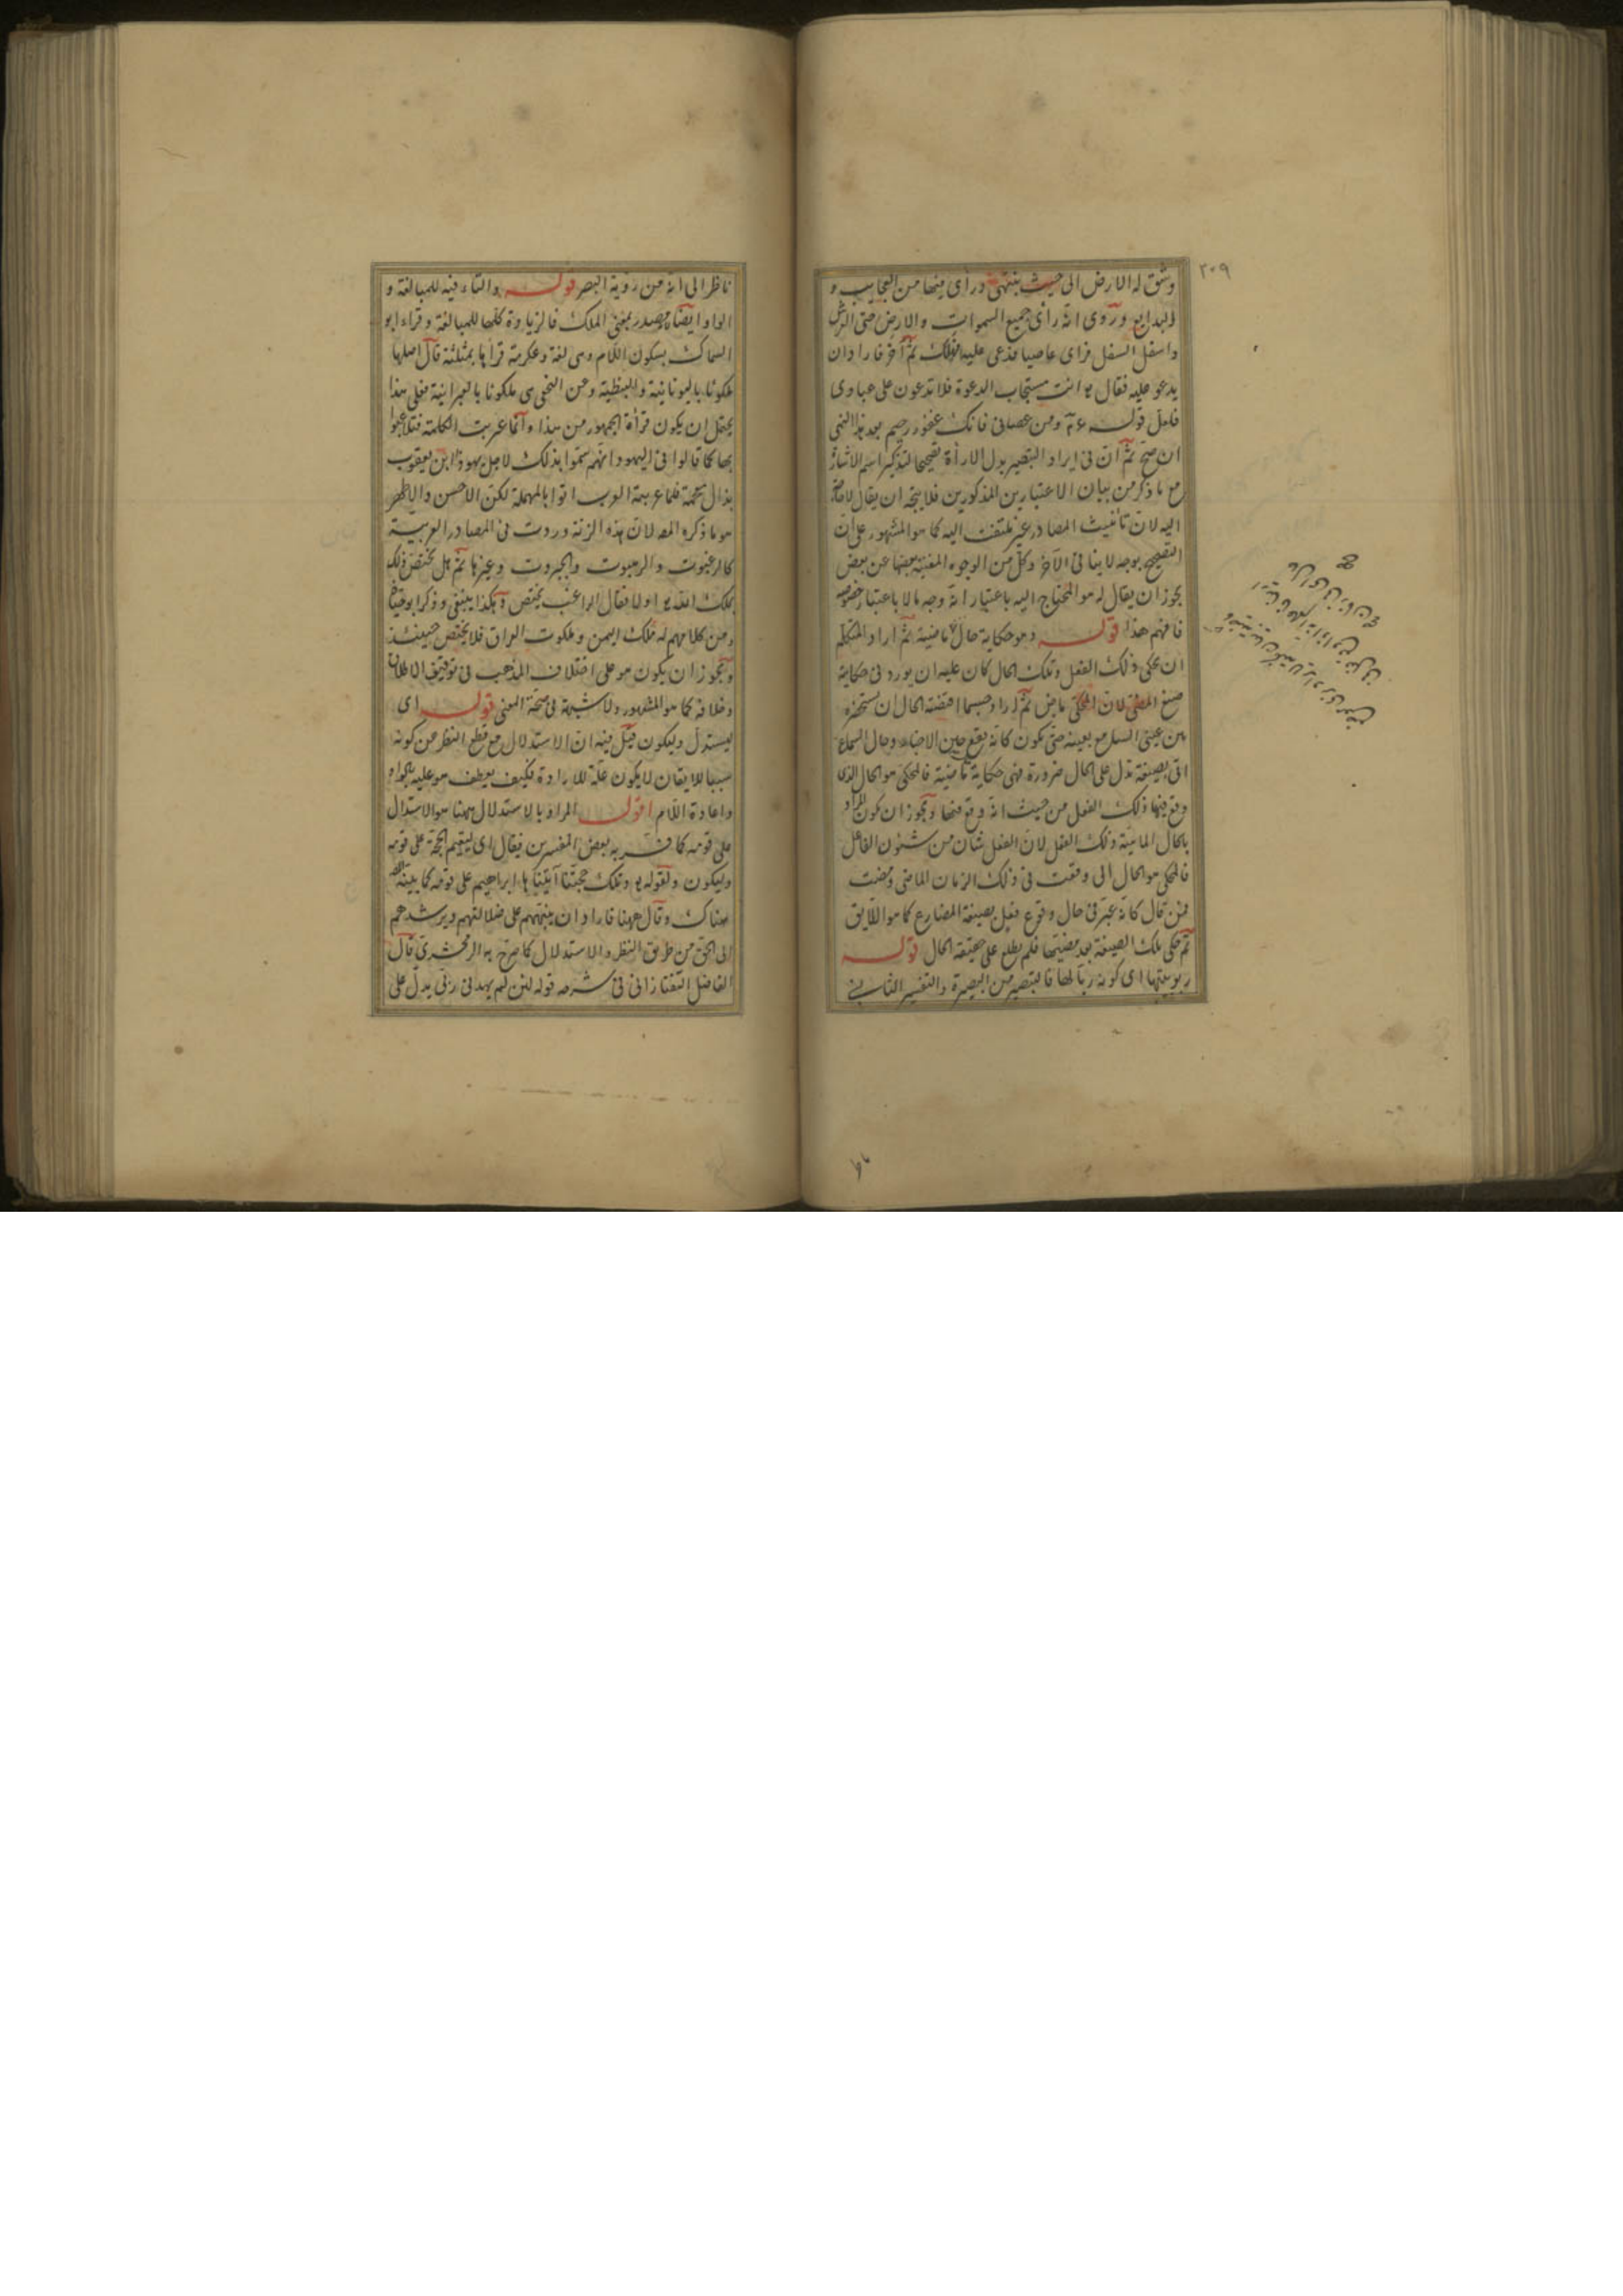 ٢٠٩
وشق له الارض الى حيث ينتهى ورأى فيها من العجايب و
البدايع وروى انه رأى جميع السموات والارض حتى العرش
واسفل السفل فراى عاصيا فدعى عليه فهلك ثم آخر فاراد ان
يدعو عليه فقال انت مستجاب الدعوة فلا تدعون على عبادى
قوله ومن عصانى فانك غفور رحيم بعد هذا النهى
ان صح ثم ان فى ايراد التبصير بدل الاراءة تصحيحا لتذكير اسم الاشارة
مع ما ذكر من بيان الاعتبارين المذكورين فلا يتجه ان يقال لا حاجة
اليه لان تأنيث المصادر غير ملتفت اليه كما هو المشهور على ان
التصحيح بوجه لا ينافى الآخر وكل من الوجوه المغنية بعضها عن بعض
يجوز ان يقال له هو المحتاج اليه باعتبار انه وجه ما لا باعتبار خصوصه
فافهم هذا قوله وهو حكاية حال ماضية ثم اراد المتكلم
ان يحكى ذلك الفعل وتلك الحال كان عليه ان يورد فى حكاية
صيغ المضى لان المحكى ماض ثم اراد حسبما اقتضته الحال ان يستحضره
بين عينى السامع بعينه حتى يكون كانه يقع حين الاخبار وحال السماع
اتى بصيغة تدل على الحال ضرورة فهى حكاية ماضية فالمحكى هو الحال الذى
وقع فيها ذلك الفعل من حيث انه وقع فيها ويجوز ان يكون المراد
بالحال الماضية ذلك الفعل لان الفعل شان من شئون الفاعل
فالمحكى هو الحال التى وقعت فى ذلك الزمان الماضى ومضت
فمن قال كانه عبر فى حال وقوع فعل بصيغة المضارع كما هو اللايق
ثم حكى تلك الصيغة بعد مضيها فلم يطلع على حقيقة الحال قوله
ربوبيتها اى كونه ربا لها فالتبصير من البصيرة والتفسير الثانى
ناظر الى انه من رؤية البصر قوله والتاء فيه للمبالغة و
الواو ايضا مصدر بمعنى الملك فالزيادة كلها للمبالغة وقراء ابو
السماك بسكون اللام وهى لغة وعكرمة قراها بمثلثة قال اصلها
ملكوثا باليونانية والنبطية وعن النخعى هى ملكوثا بالعبرانية فعلى هذا
يحتمل ان يكون قراءة الجمهور من هذا وانما عربت الكلمة فتلاعبوا
بها كما قالوا فى اليهود انهم سموا بذلك لاجل يهوذا ابن يعقوب
بذال معجمة فلما عربته العرب اتوا بالمهملة لكن الاحسن والاظهر
هو ما ذكره المصـ لان هذه الزنة وردت فى المصادر العربية
كالرغبوت والرهبوت والجبروت وغيرها ثم هل يختص ذلك
بملك الله اولا فقال الراغب يختص وهكذا ينبغى وذكر ابو حيان
ومن كلامهم له ملك اليمن وملكوت العراق فلا يختص حينئذ
ويجوز ان يكون هو على اختلاف المذهب فى توقيف الاطلاق
وخلافه كما هو المشهور ولا شبهة فى صحة المعنى قوله اى
ليستدل وليكون قيل فيه ان الاستدلال مع قطع النظر عن كونه
سببا للايقان لا يكون علة للاراءة فكيف يعطف هو عليه بالواو
واعادة اللام اقول المراد بالاستدلال ههنا هو الاستدلال
على قومه كما فسر به بعض المفسرين فيقال اى ليقيم الحجة على قومه
وليكون ولقوله وتلك حجتنا آتيناها ابراهيم على قومه كما بينه
هناك وقال ههنا فاراد ان ينبههم على ضلالتهم ويرشدهم
الى الحق من طريق النظر والاستدلال كما صرح به الزمخشرى قال
الفاضل التفتازانى فى شرحه قوله لئن لم يهدنى ربى يدل على